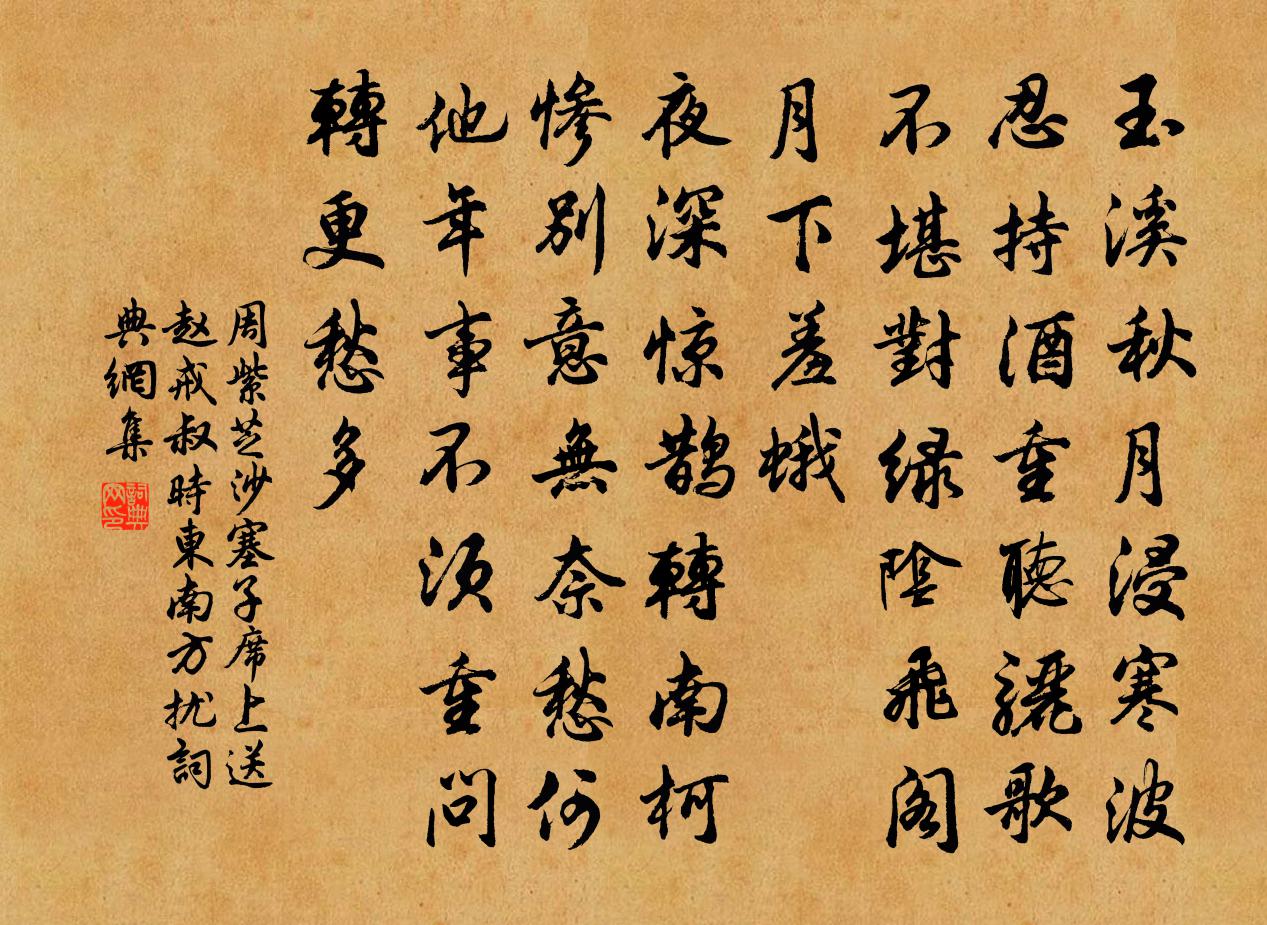 玉溪秋月浸寒波
忍持酒重聽驪歌
不堪對緑陰飛閣
月下羞蛾
夜深惊鵲轉南柯
慘別意無奈愁何
他年事不須重問
轉更愁多
周紫芝沙塞子席上送
赵戒叔時東南方扰詞
典網集
詞典网印